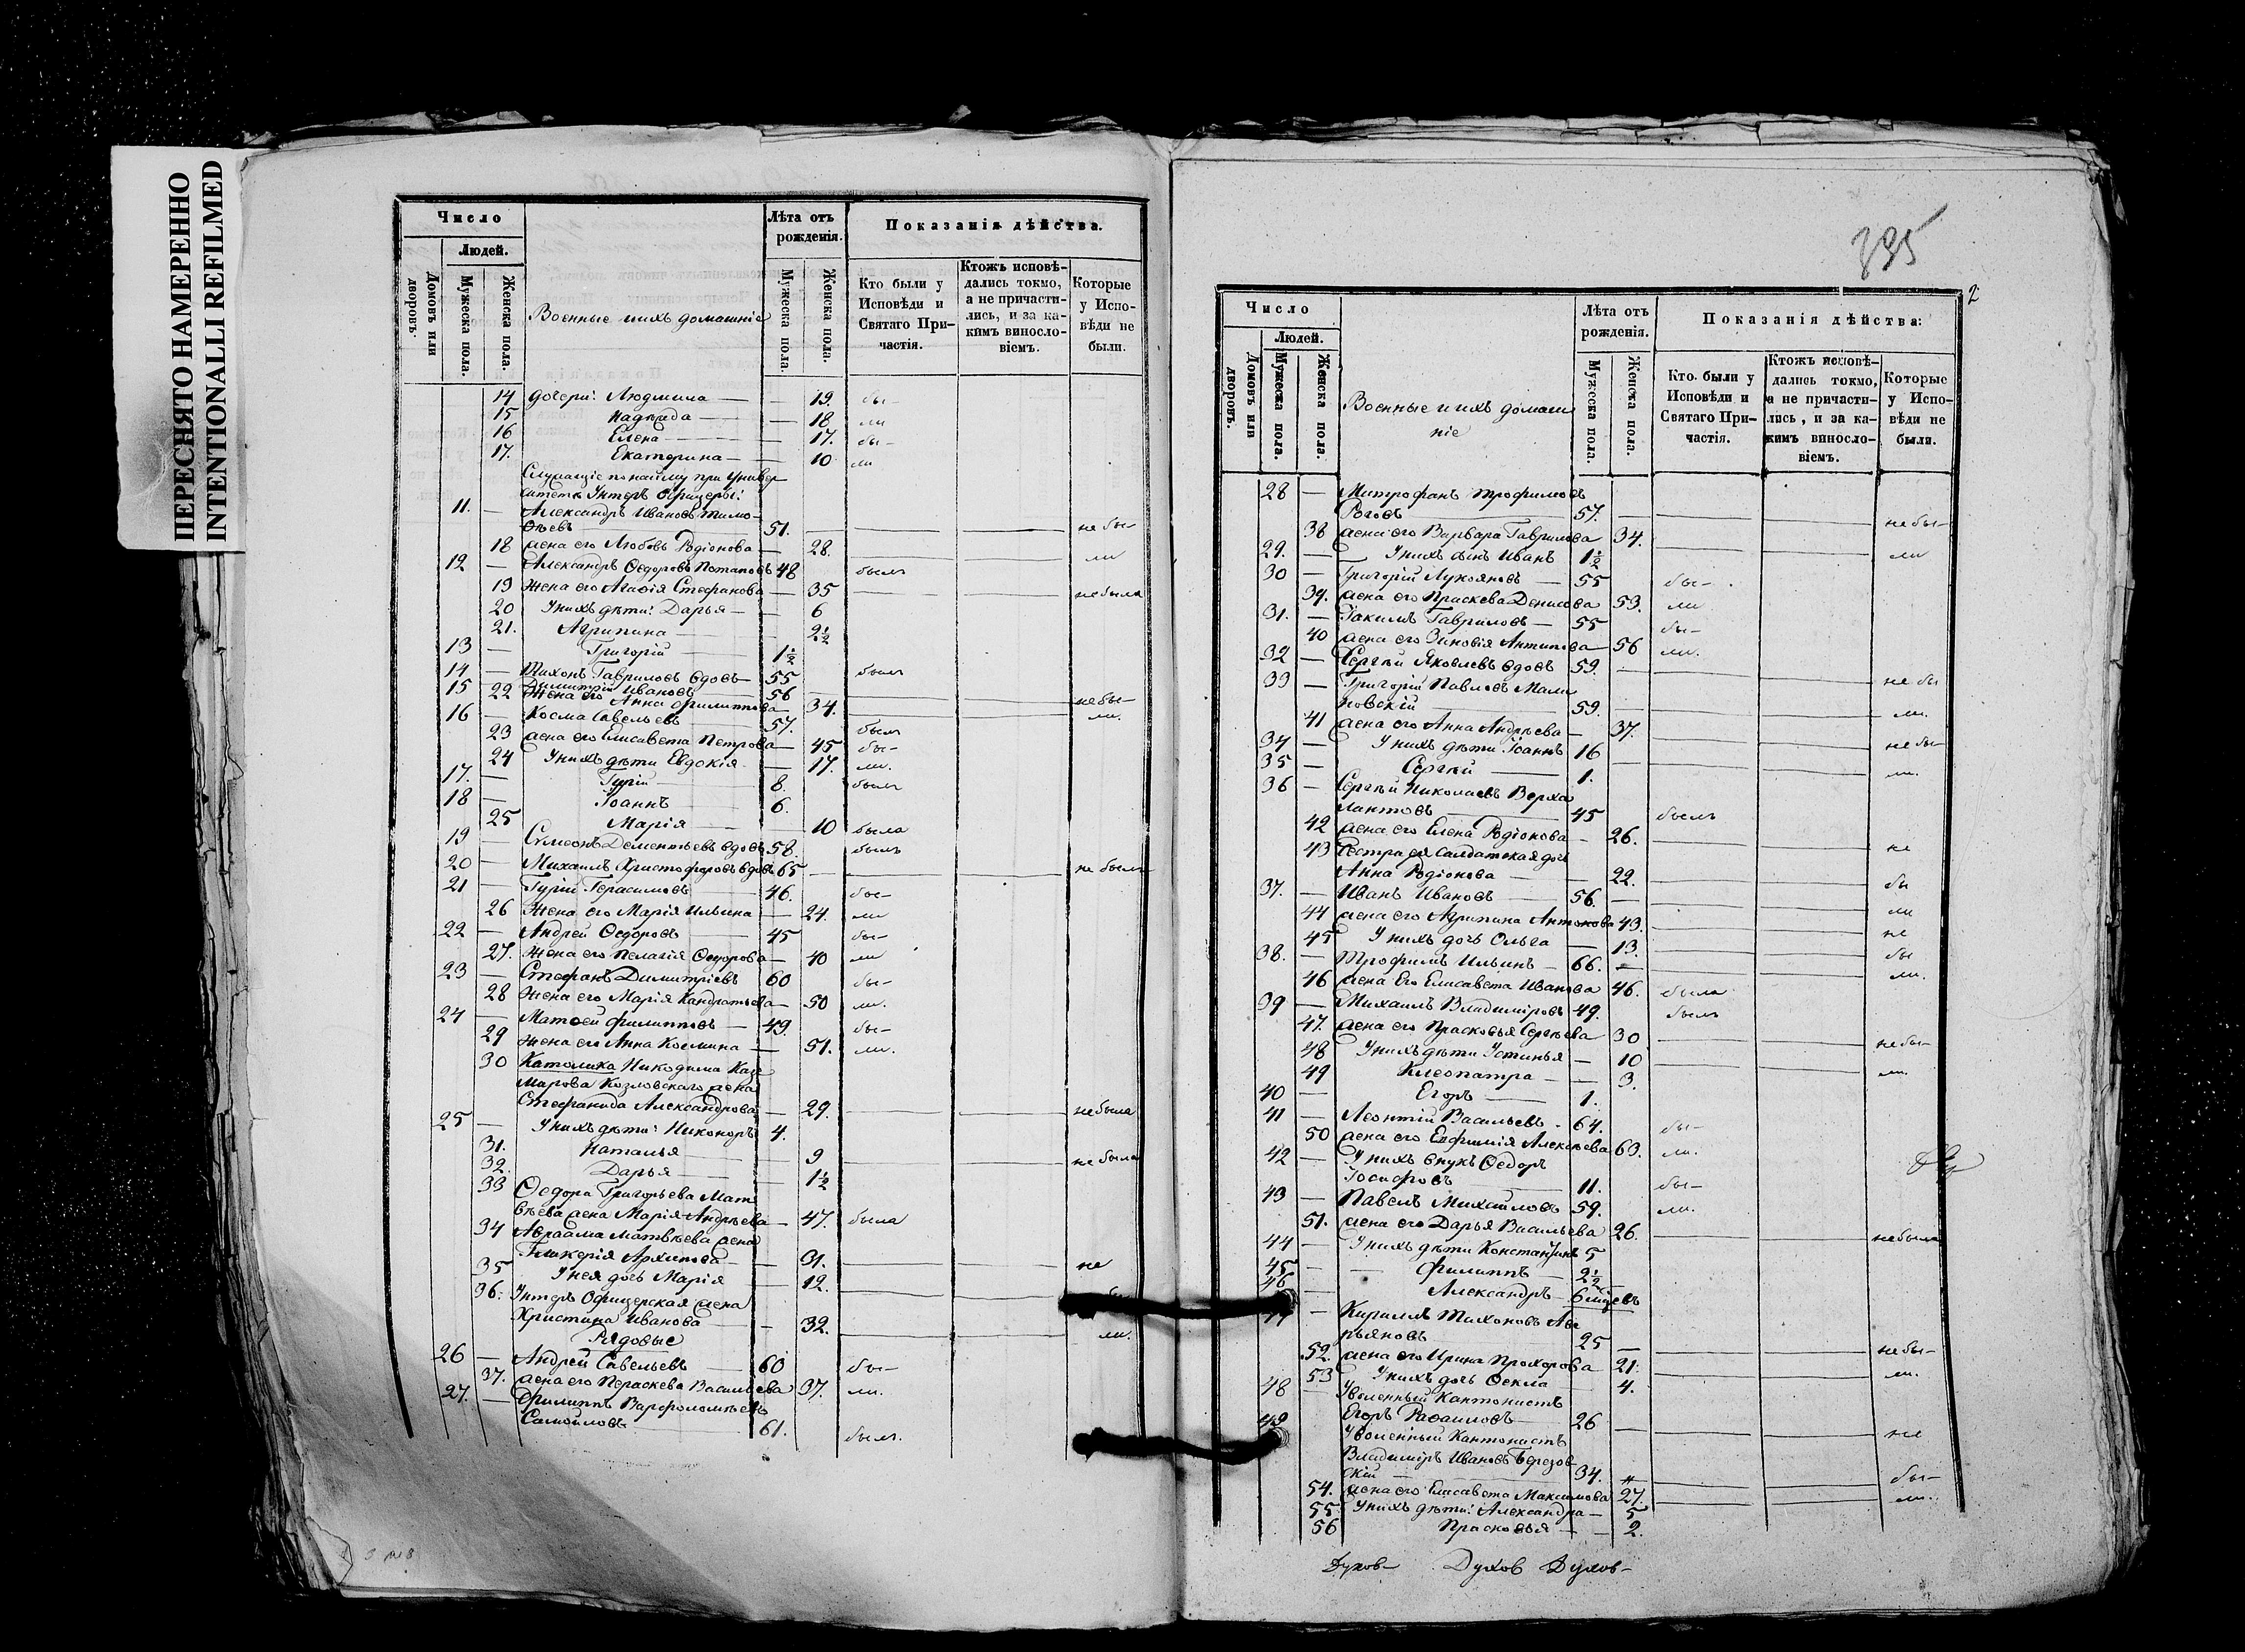 ПЕРЕСНЯТО НАМЕРЕННО
INTENTIONALLI REFILMED
Число
Людей.
Домовъ или дворовъ.
Мужеска пола.
Женска пола.
Военные и ихъ домашніе
Лѣта отъ рожденія.
Мужеска пола.
Женска пола.
Показанія дѣйства.
Кто были у Исповѣди и Святаго Причастія.
Ктожъ исповѣдались токмо, а не причастились, и за какимъ винословіемъ.
Которые у Исповѣди не были.
14 дочери: Людмила — 19. бы-
15 Надежда — 18 ли
16 Елена — 17. бы-
17. Екатерина — 10 ли
Служащіе по найму при Универ
ситетѣ Унтеръ Офицеры:
11. — Александръ Ивановъ Тимо-
ѳеевъ 51. не бы-
18 жена его Любовь Родіонова — 28. ли
12 — Александръ Ѳедоровъ Потаповъ 48 былъ
19 Жена его Агафія Стефанова — 35 не была
20 У нихъ дѣти: Дарья — 6
21. Агрипина — 2½
13 — Григорій 1½
14 — Тихонъ Гавриловъ вдовъ — 55 былъ
15 — Димитрій Ивановъ 56 не бы-
22 Жена его Анна Филиппова — 34. ли.
16 — Косма Савельевъ 57. былъ
23 жена его Елисавета Петрова — 45 бы-
24 У нихъ дѣти Евдокія — 17. ли.
17. — Гурій 8. былъ
18 — Іоаннъ 6.
25 Марія 10 была
19 — Сѵмеонъ Дементьевъ вдовъ 58. былъ
20 — Михаилъ Христофоровъ вдовъ 65 не былъ
21 — Гурій Герасимовъ 46. бы-
26 Жена его Марія Ильина — 24. ли
22 — Андрей Ѳедоровъ 45 бы-
27. Жена его Пелагія Ѳедорова — 40 ли
23 — Стефанъ Димитріевъ 60 бы-
28 Жена его Марія Кандратьева — 50 ли.
24 — Матѳей Филипповъ — 49. бы-
29 Жена его Анна Космина — 51. ли.
30 Католика Никодима Каз
марова Козловскаго жена
Стефанида Александрова — 29. не была
25 — У нихъ дѣти: Никоноръ 4.
31. Наталья 9 не была
32. Дарья 1½
33 Ѳедора Григорьева Мат
вѣева жена Марія Андрѣева — 47. была
34 Авраама Матвѣева жена
Гликерія Архипова — 31. не
35 У нея дочь Марія — 12.
36. Унтеръ Офицерская жена
Христина Иванова — 32. ли.
Рядовые
26 — Андрей Савельевъ 60 бы-
37. жена его Параскева Васильева 37. ли.
27. — Филиппъ Варфоломѣевъ
Самойловъ 61. былъ.
335
2
Число
Людей.
Домовъ или дворовъ.
Мужеска пола.
Женска пола.
Военные и ихъ домаш
ніе
Лѣта отъ рожденія.
Мужеска пола.
Женска пола.
Показанія дѣйства:
Кто были у Исповѣди и Святаго Причастія.
Ктожъ исповѣдались токмо, а не причастились, и за какимъ винословіемъ.
Которые у Исповѣди не были.
28 — Митрофанъ Трофимовъ
Роговъ 57. не бы-
38 жена его Варвара Гаврилова 34. ли
29. — У нихъ сынъ Иванъ 1½
30 — Григорій Лукояновъ — 55 бы-
39. жена его Праскева Денисова 53. ли
31. — Іакимъ Гавриловъ — 55 бы-
40 жена его Зиновія Антипова — 56 ли.
32 — Сергѣй Яковлевъ вдовъ 59. не бы
33 — Григорій Павловъ Мали
новскій 59. ли.
41 жена его Анна Андрѣева — 37. не бы-
34 — У нихъ дѣти: Іоаннъ 16
35 — Сергѣй 1. ли.
36 — Сергѣй Николаевъ Верха
лантовъ 45 былъ
42 жена его Елена Родіонова — 26. не
43 Сестра ея Салдатская дочь
Анна Родіонова — 22. бы
37. — Иванъ Ивановъ 56. ли
44 жена его Агрипина Антонова 43. не
45 У нихъ дочь Ольга — 13. бы
38. — Трофимъ Ильинъ — 66. ли.
46 жена Его Елисавета Иванова 46. была
39 — Михаилъ Владиміровъ 49. былъ
47. жена его Прасковья Сергѣева 30 не бы-
48 У нихъ дѣти Устинья — 10 ли.
49 Клеопатра — 3.
40 — Егоръ 1.
41 — Леонтій Васильевъ — 64. бы-
50 жена его Евфимія Алексѣева 60. ли.
42 — У нихъ внукъ Ѳедоръ
Іосифовъ 11. бы-
43 — Павелъ Михайловъ 59. ли.
51. жена его Дарья Васильева 26. не была
44 — У нихъ дѣти Константинъ 5
45 — Филиппъ — 2½
46 — Александръ — 6 мѣсяцевъ
— Кирилъ Тихоновъ Аве
рьяновъ 25 —
52. жена его Ирина Прохорова — 21. не бы-
53 У нихъ дочь Ѳекла 4. ли.
48 — Уволенный Кантонистъ
Егоръ Рафаиловъ 26 не
49 Уволенный Кантонистъ
Владиміръ Ивановъ Березов
скій 34. бы-
54. жена его Елисавета Максимова 27. ли.
55. У нихъ дѣти: Александра — 5
56 Прасковья — 2.
Духов- Духов Духов-